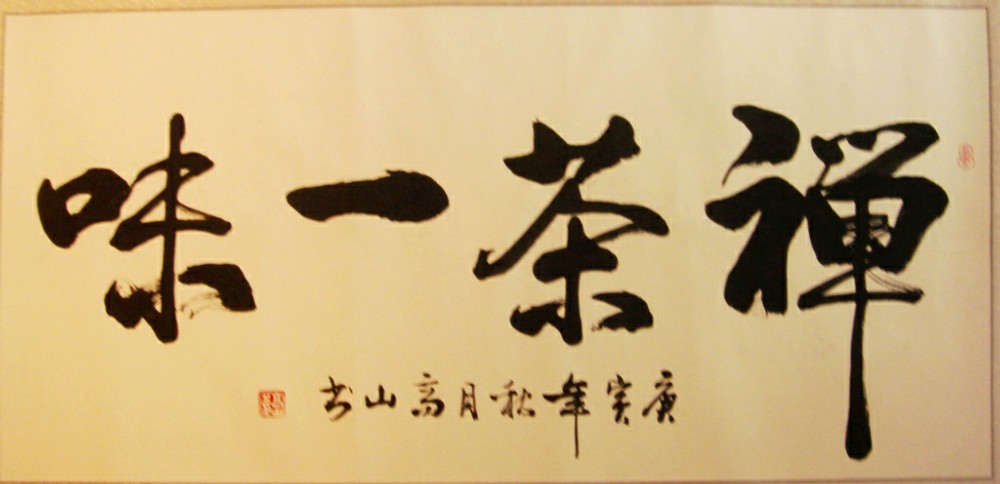 禅茶一味
庚寅年秋月高山书